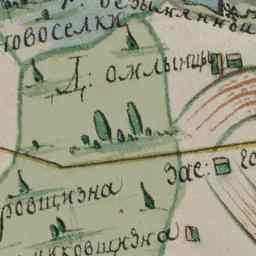 безымянной
новоселки
Д: омлынцы
зас:
ровщизна
миковщизна